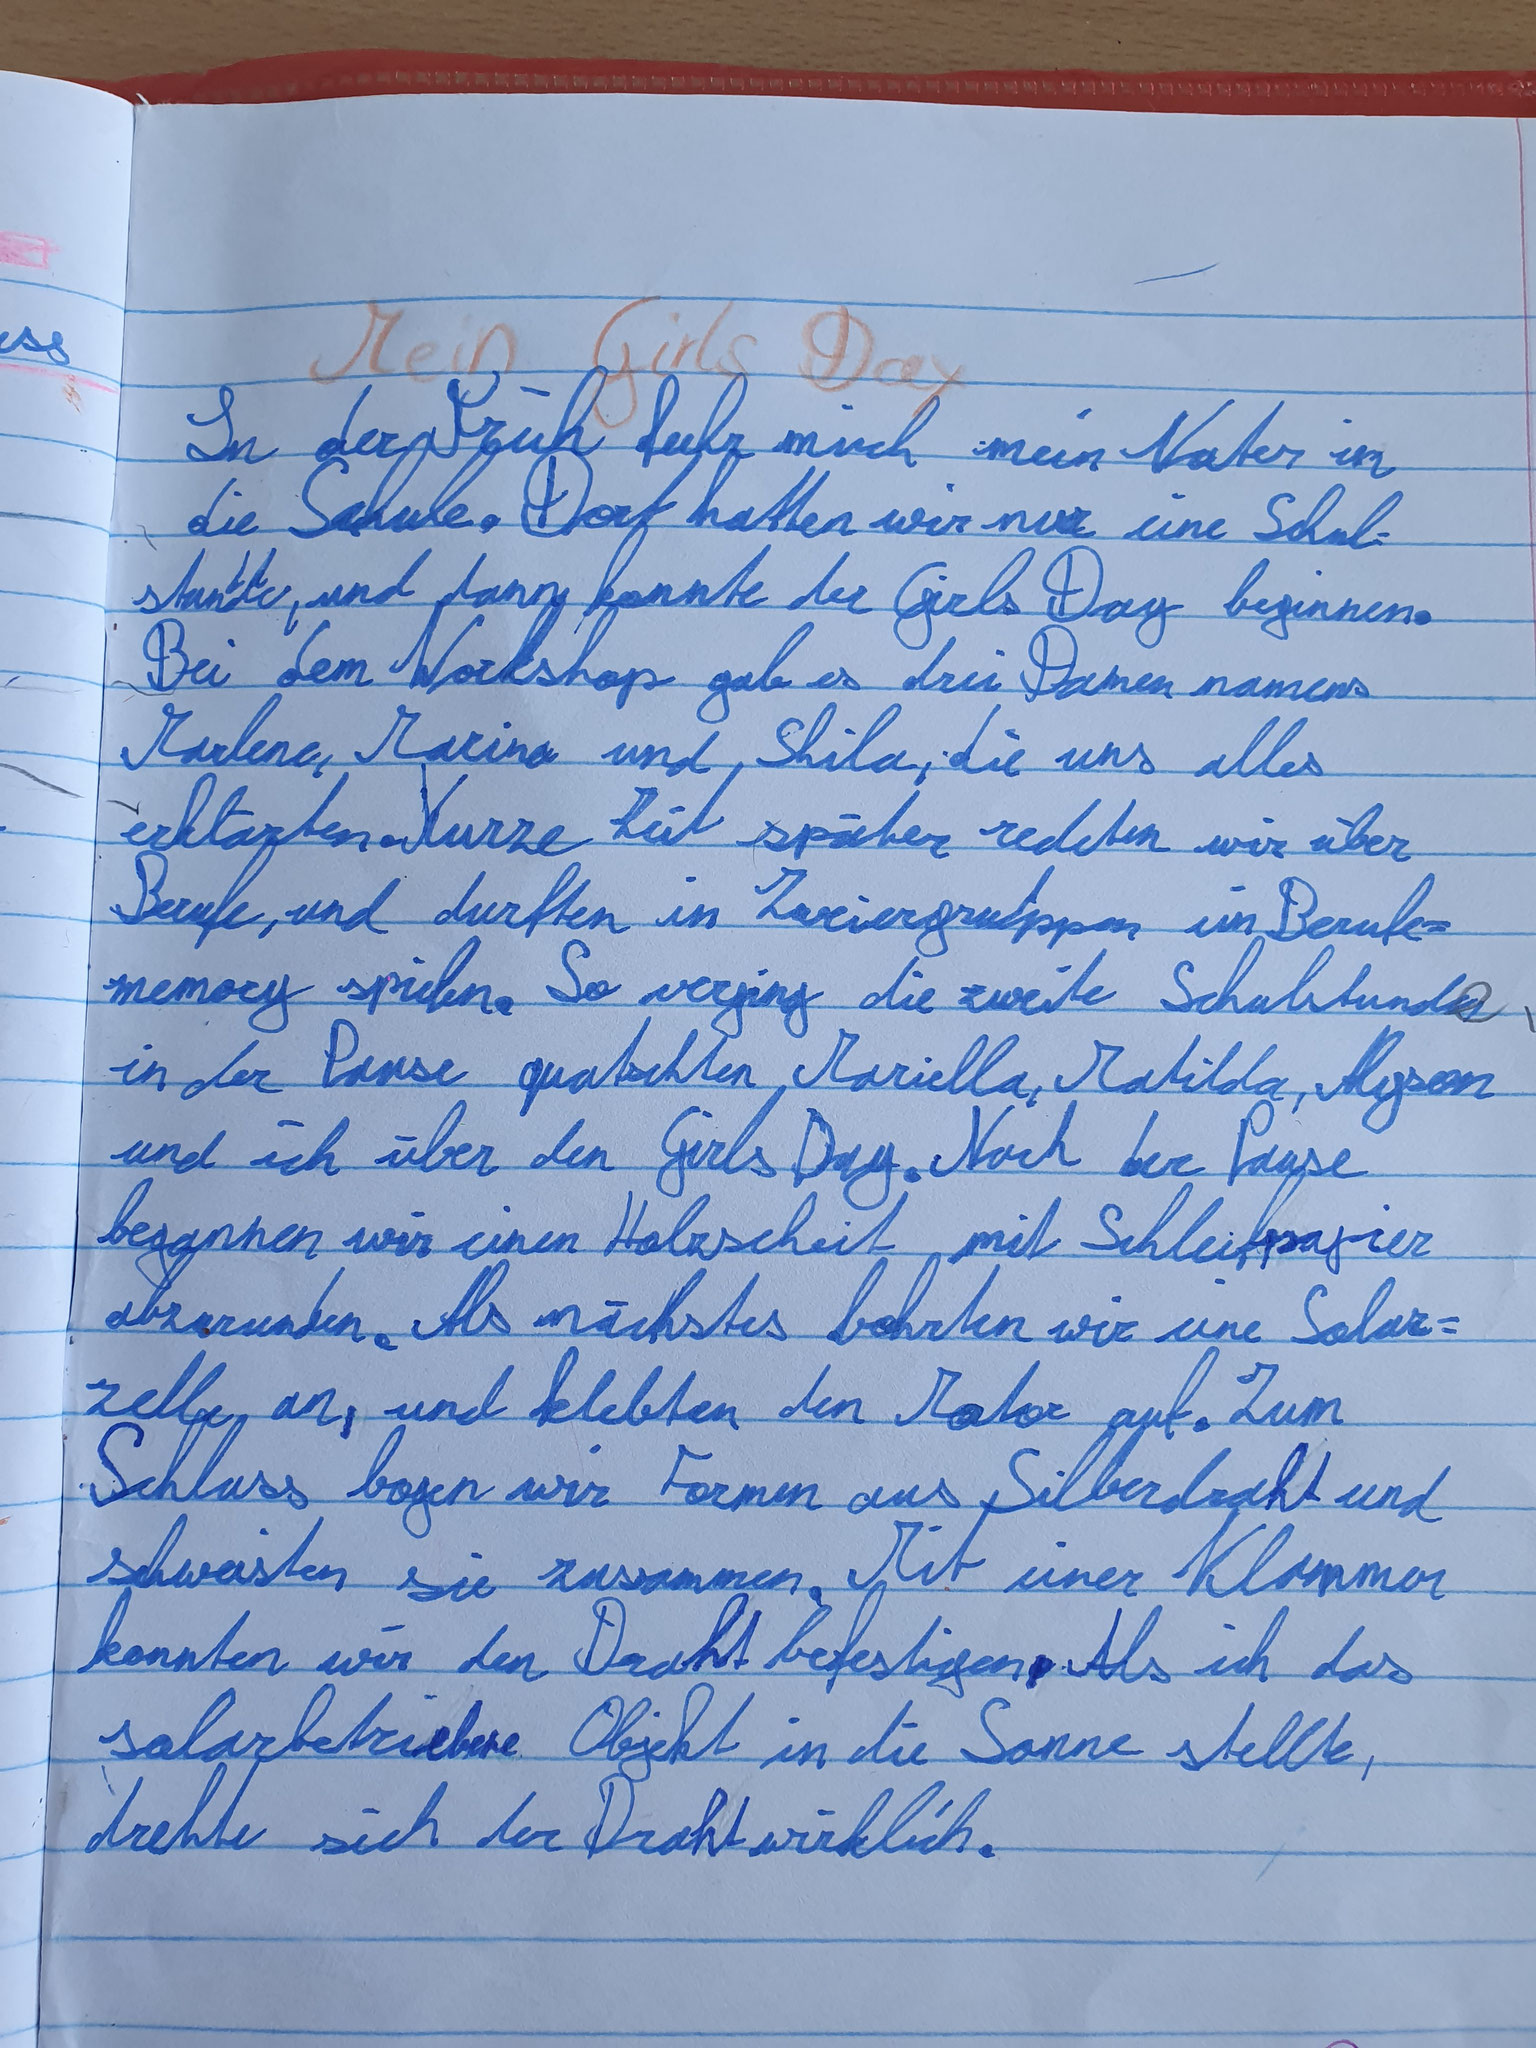 ess
Mein Girls Day
In der Früh fuhr mich mein Vater in
die Schule. Dort hatten wir nur eine Schul=
stunde, und dann konnte der Girls Day beginnen.
Bei dem Workshop gab es drei Damen namens
Marlene, Marina und Shila, die uns alles
erklärten. Kurze Zeit später redeten wir über
Berufe, und durften in Zweiergruppen ein Berufe=
memory spielen. So verging die zweite Schulstunde
in der Pause quatschten Mariella, Matilda, Alyson
und ich über den Girls Day. Nach der Pause
begannen wir einen Holzscheit mit Schleifpapier
abzurunden. Als nächstes bohrten wir eine Solar=
zelle an, und klebten den Motor auf. Zum
Schluss bogen wir Formen aus Silberdraht und
schweisten sie zusammen. Mit einer Klammer
konnten wir den Draht befestigen. Als ich das
solarbetriebene Objekt in die Sonne stellte,
drehte sich der Draht wirklich.